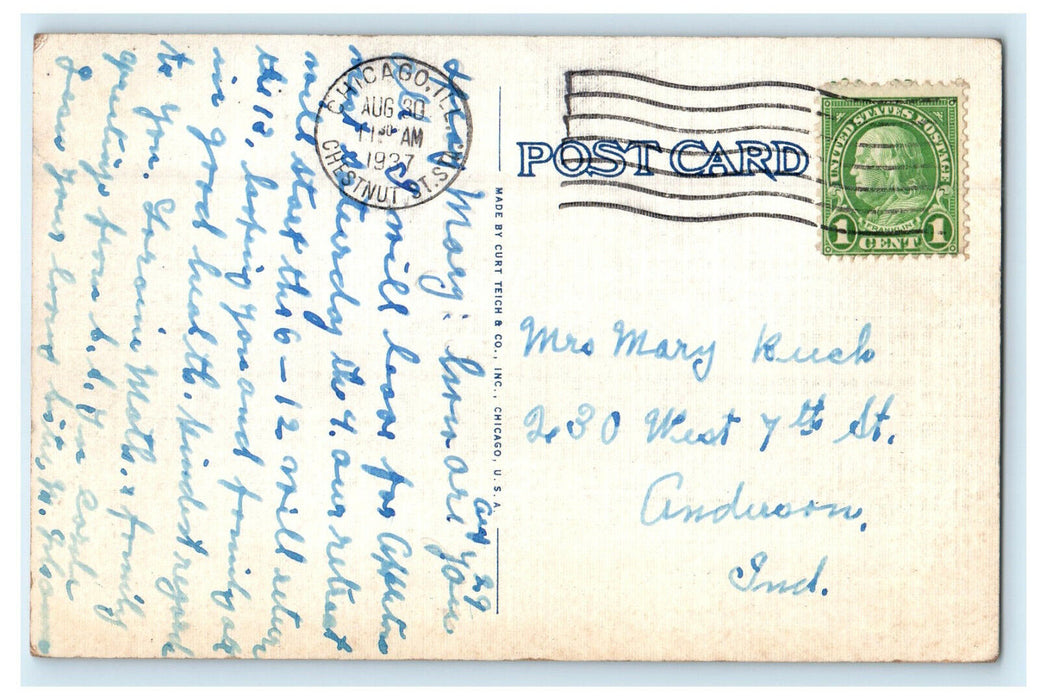 CHICAGO, ILL.
AUG 30
11 30 AM
1937
CHESTNUT ST. STA.
UNITED STATES POSTAGE
FRANKLIN
1 CENT 1
POST CARD
MADE BY CURT TEICH & CO., INC., CHICAGO, U.S.A.
Aug 29
Dear Mary: how are you
will leave for
next Saturday the 4. our retreat
will start the 6 – 12 will return
the 12, hoping you and family are
in good health. Kindest regards
to you. Matts. & family
greetings from
yours
Mrs Mary Kuch
230 West 7th St.
Anderson,
Ind.